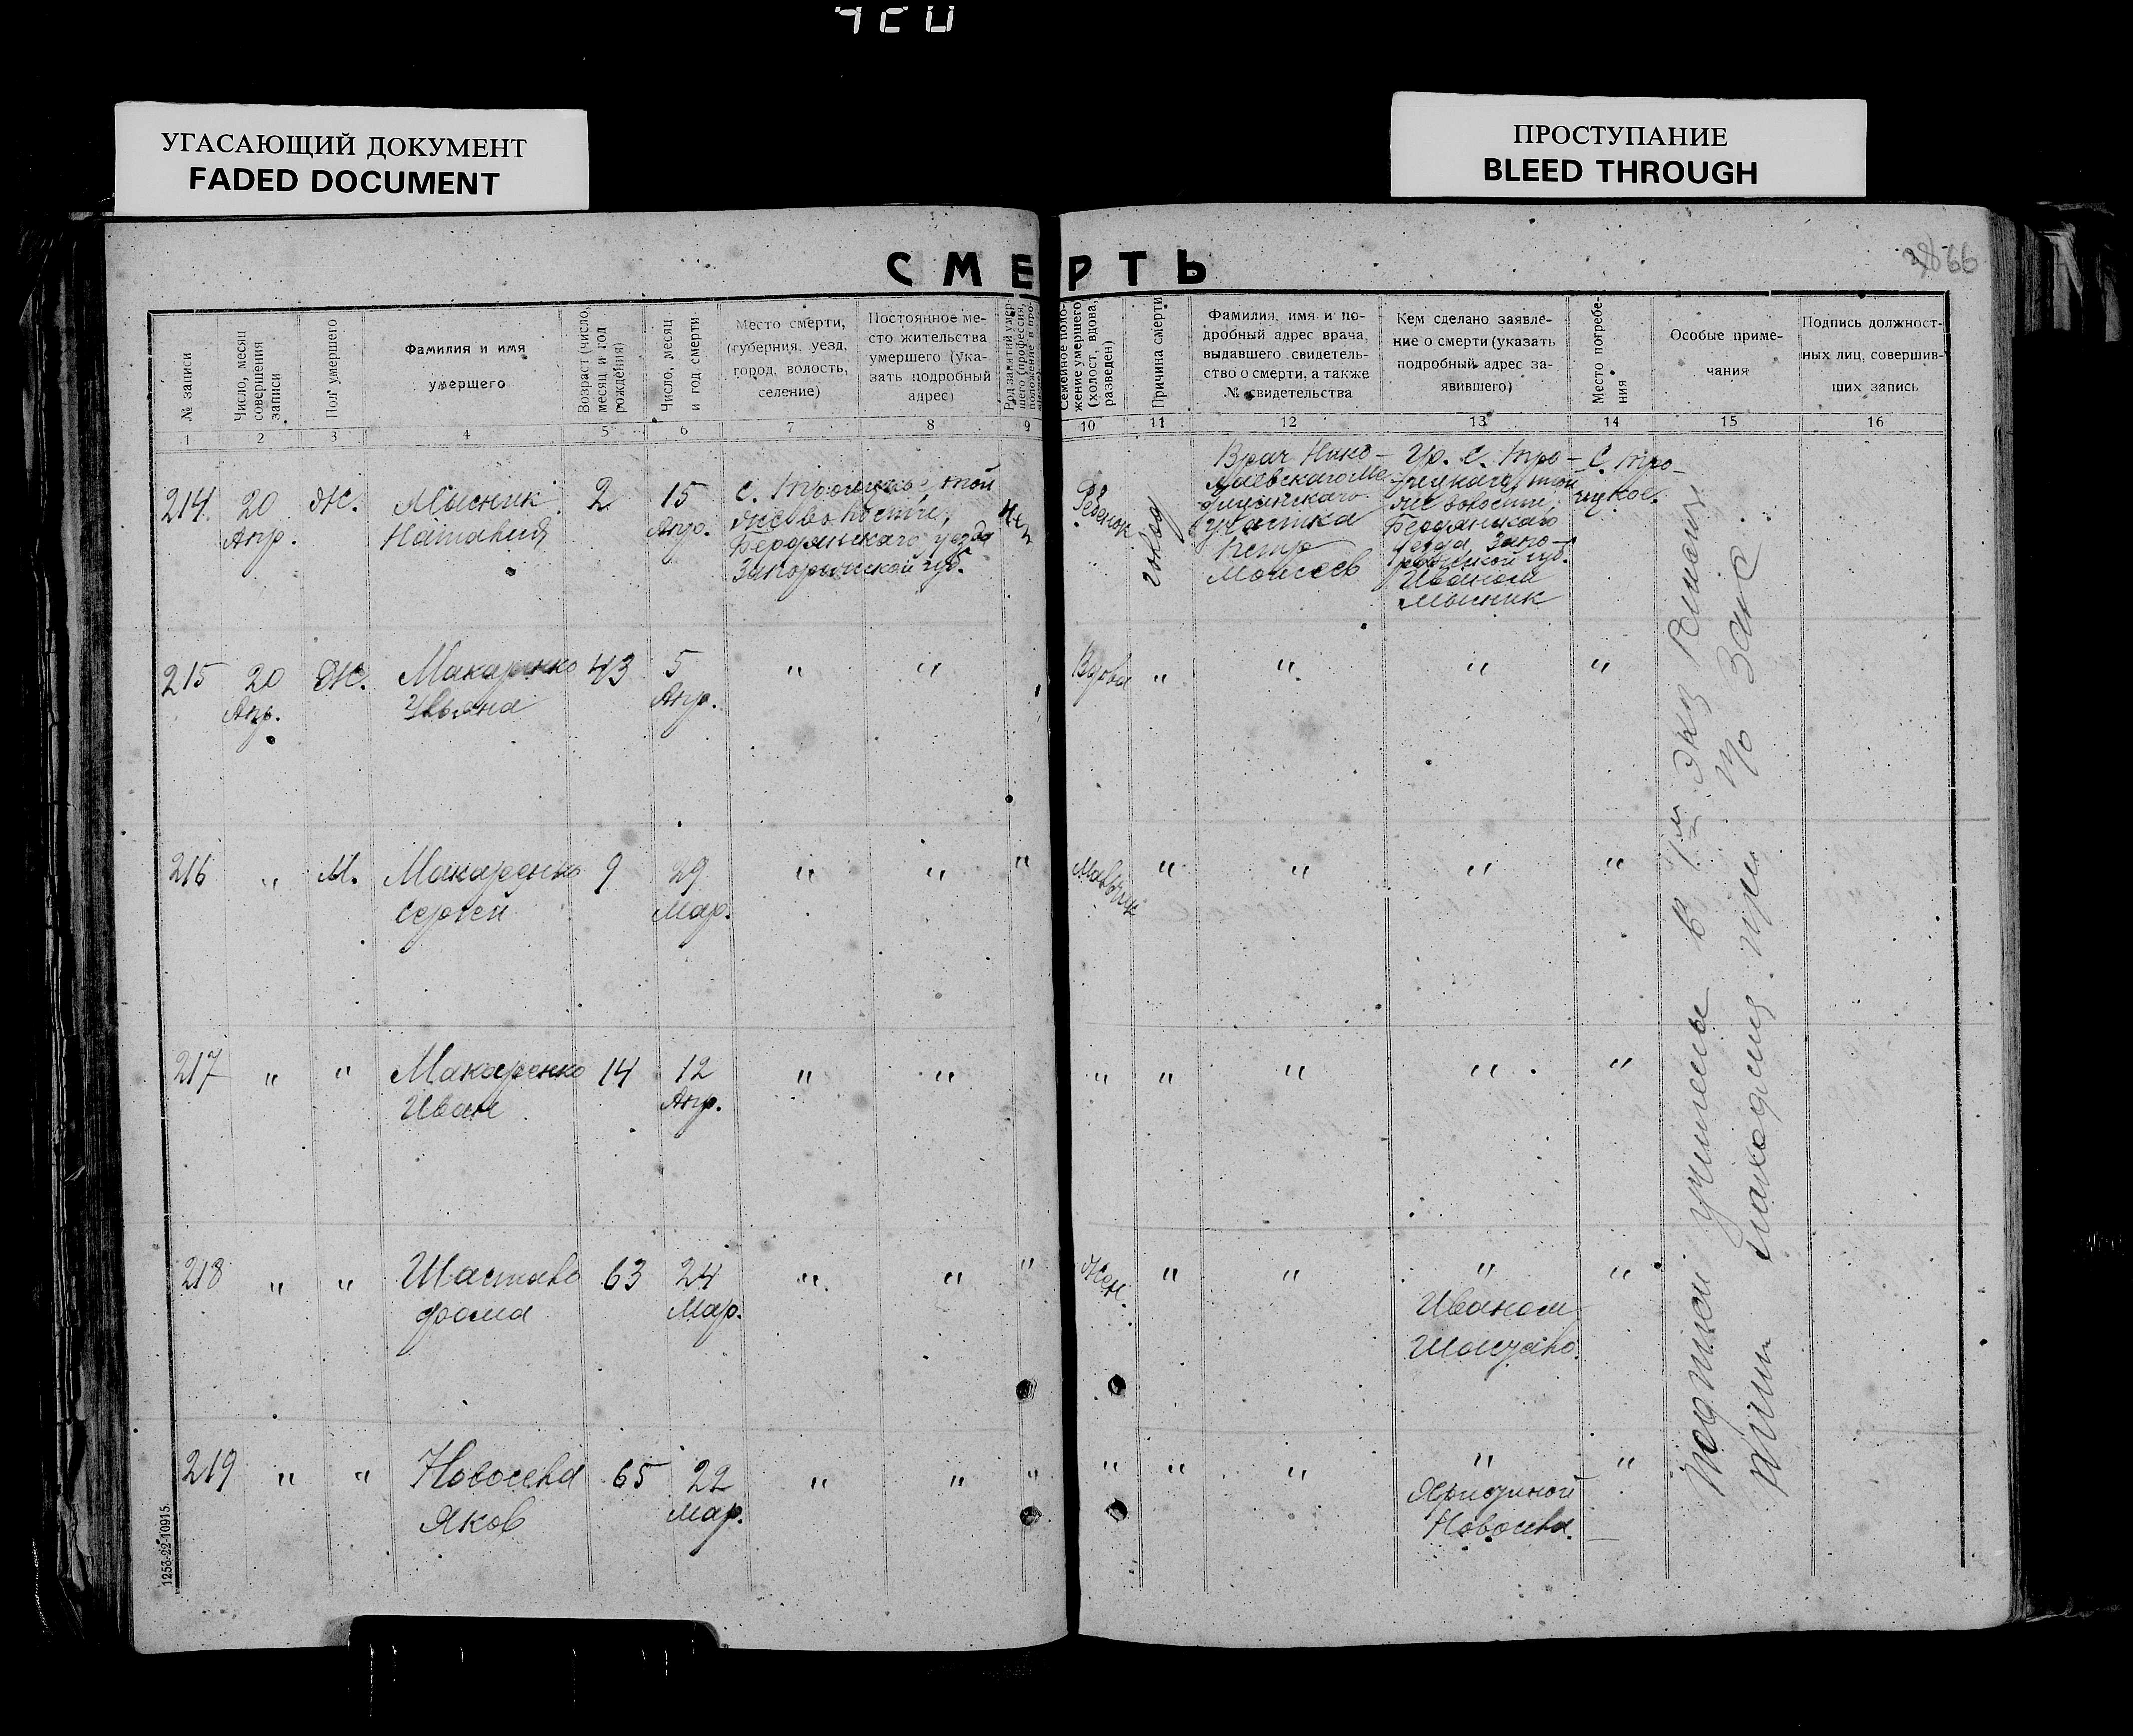 УГАСАЮЩИЙ ДОКУМЕНТ
FADED DOCUMENT
ПРОСТУПАНИЕ
BLEED THROUGH
66
СМЕРТЬ
№ записи
Число, месяц совершения записи
Пол умершего
Фамилия и имя
умершего
Возраст (число, месяц и год рождения)
Число, месяц и год смерти
Место смерти,
(губерния, уезд,
город, волость,
селение)
Постоянное ме-
сто жительства
умершего (ука-
зать подробный
адрес)
Род занятий умер-
шего (профессия,
положение в про-
Семейное поло-
жение умершего
(холост, вдова,
разведен)
Причина смерти
Фамилия, имя и по-
дробный адрес врача,
выдавшего свидетель-
ство о смерти, а также
№ свидетельства
Кем сделано заявле-
ние о смерти (указать
подробный адрес за-
явившего)
Место погребе-
ния
Особые приме-
чания
Подпись должност-
ных лиц, совершив-
ших запись
1 2 3 4 5 6 7 8 9 10 11 12 13 14 15 16
214. 20 Апр. Ж. Мысник Наталия 2 15 Апр.
с. Троицкое, той
же волости,
Бердянскаго уезда
Запорожской губ.
Ребенок
голод
Врач Нико-
лаевскаго Ме-
дицинскаго
участка
Петр
Моисеев
Гр. с. Тро-
ицкаго, той
же волости,
Бердянскаго
уезда, Запо-
рожской губ.
Иваном
Мысник
С. Тро-
ицкое.
215 20 Апр. Ж. Макаренко Ульяна 43 5 Апр. " " " Вдова " " " "
216 " М. Макаренко Сергей 9 29 Мар. " " " Мальчик " " " "
217 " " Макаренко Иван 14 12 Апр. " " " " " " "
218 " " Шаставо Фома 63 24 Мар. " " " Жен. " " "
Иваном
"
219 " " Новосела Яков 65 22 Мар. " " " " " " "
Новосела.
"
Подписи учинены в 1м экз
находящимся при
ЗагС.
1253-22-10915